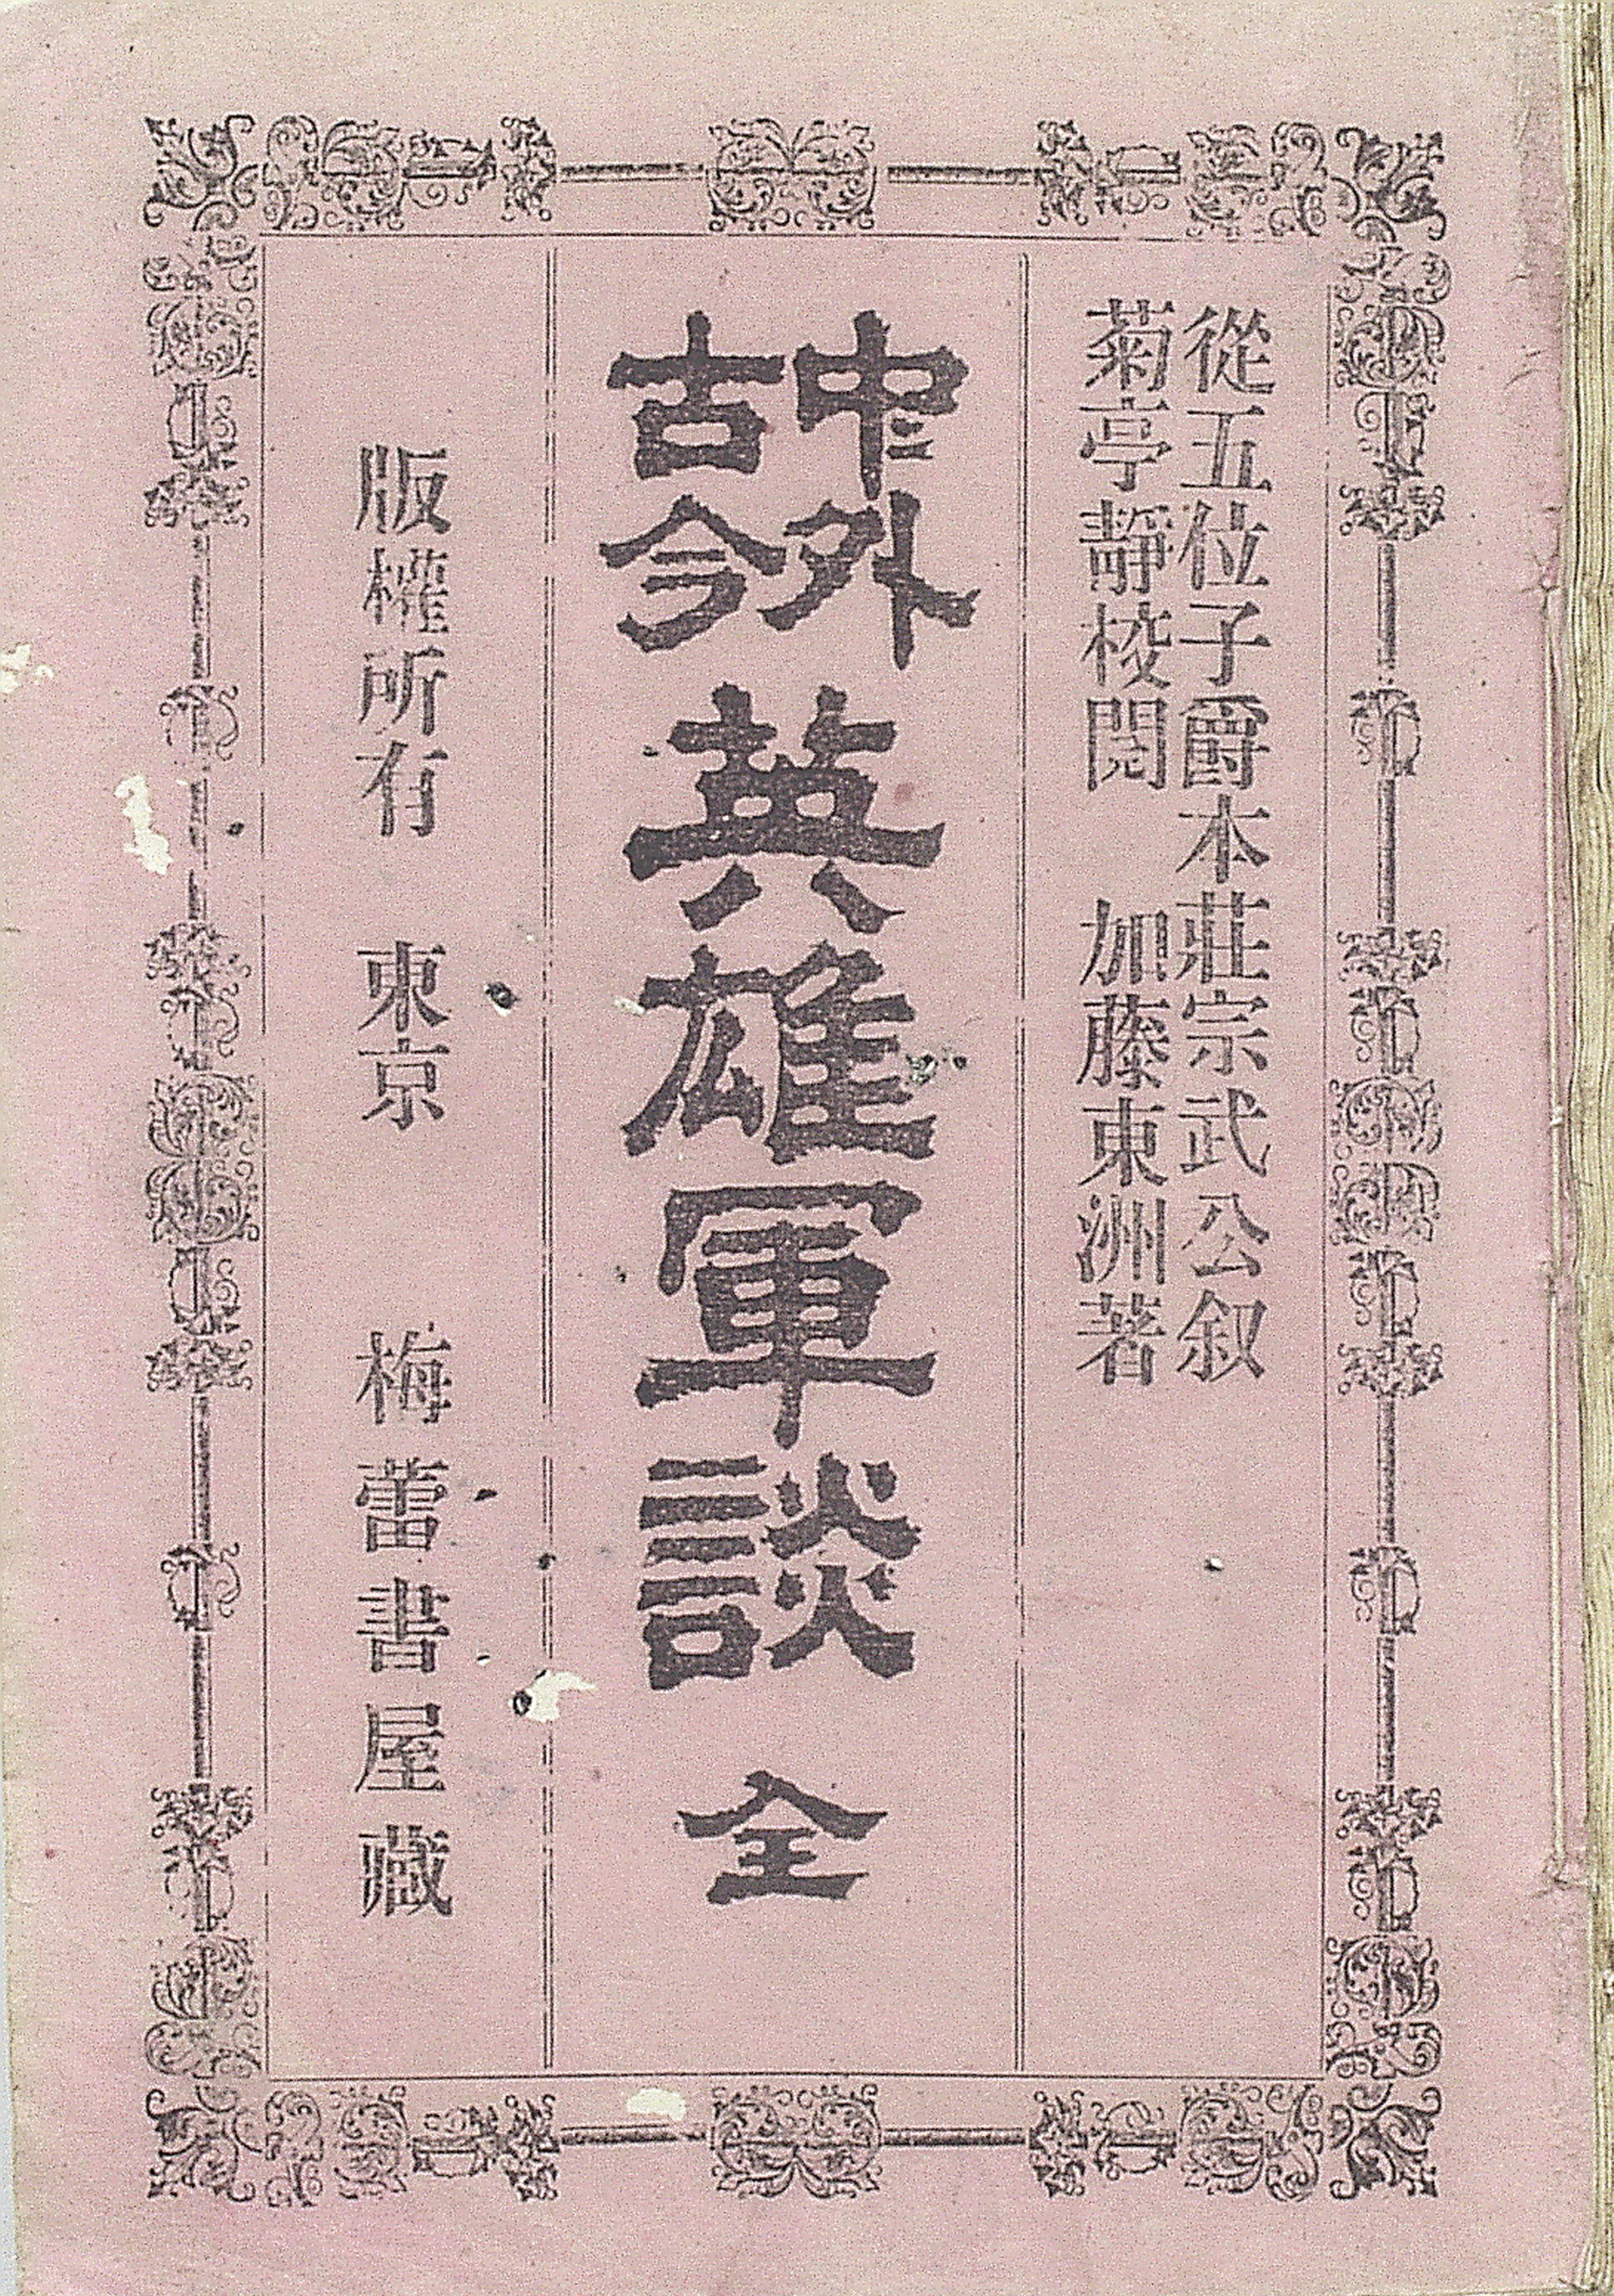 從五位子爵本莊宗武公叙
菊亭靜校閱　加藤東洲著
中外
古今
英雄軍談　全
版權所有　東京　梅蕾書屋藏